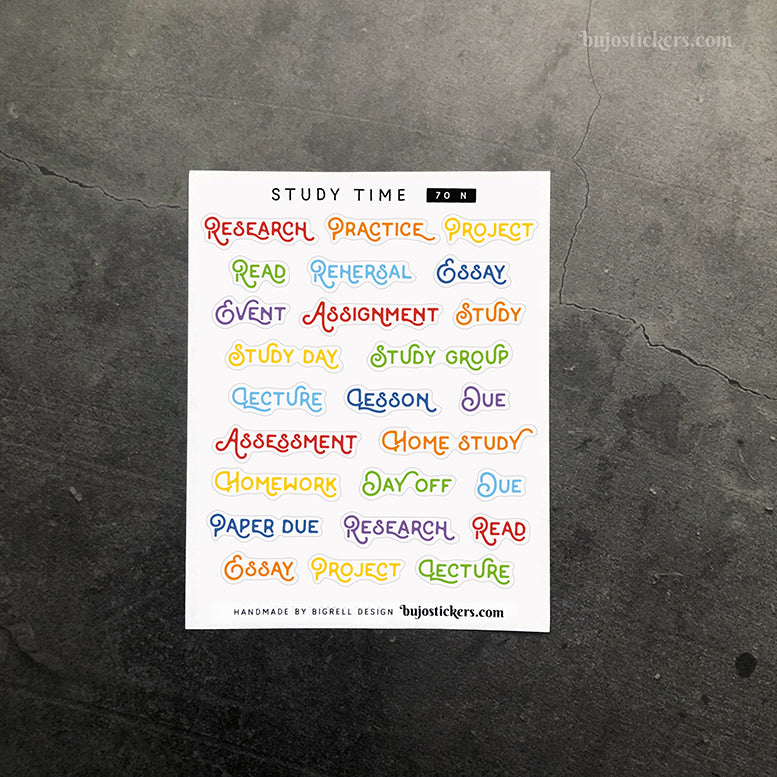 bujostickers.com
STUDY TIME 70 N
RESEARCH PRACTICE PROJECT
READ REHERSAL ESSAY
EVENT ASSIGNMENT STUDY
STUDY DAY STUDY GROUP
LECTURE LESSON DUE
ASSESSMENT HOME STUDY
HOMEWORK DAY OFF DUE
PAPER DUE RESEARCH READ
ESSAY PROJECT LECTURE
HANDMADE BY BIGRELL DESIGN bujostickers.com